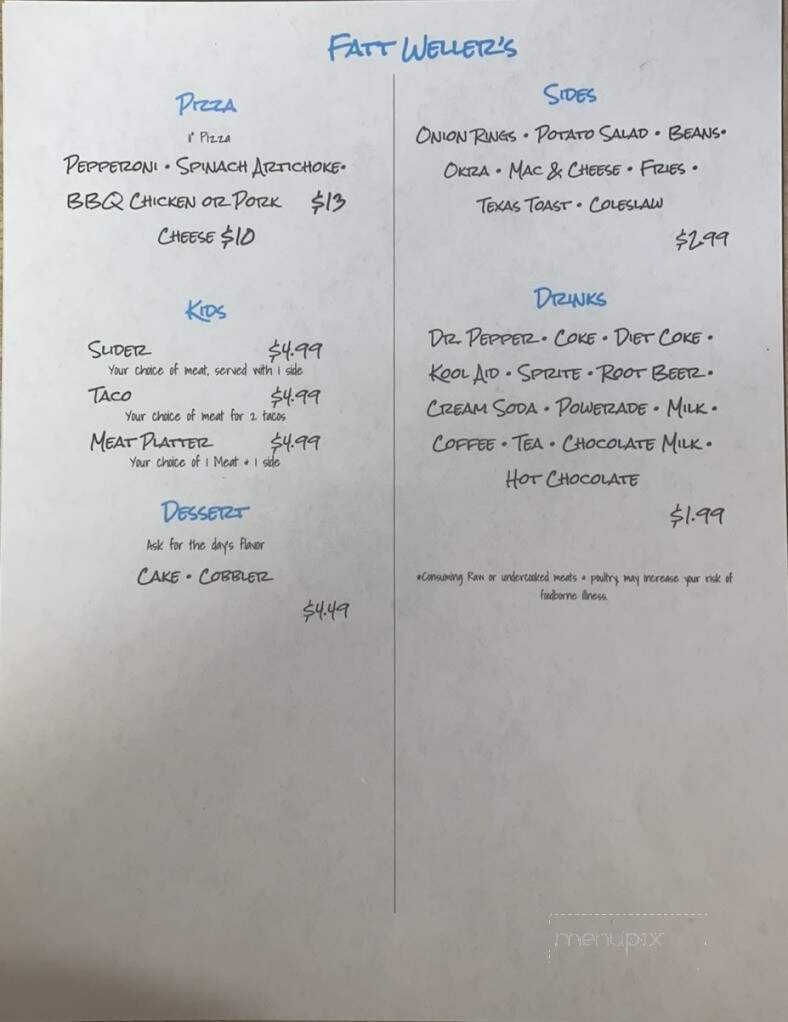 FATT WELLER'S
PIZZA
Pizza
PEPPERONI • SPINACH ARTICHOKE•
BBQ CHICKEN OR PORK $13
CHEESE $10
KIDS
SLIDER $4.99
Your choice of meat, served with 1 side
TACO $4.99
Your choice of meat for 2 tacos
MEAT PLATTER $4.99
Your choice of 1 Meat + 1 side
DESSERT
Ask for the day's flavor
CAKE • COBBLER
$4.49
SIDES
ONION RINGS • POTATO SALAD • BEANS•
OKRA • MAC & CHEESE • FRIES •
TEXAS TOAST • COLESLAW
$2.99
DRINKS
DR. PEPPER • COKE • DIET COKE •
KOOL AID • SPRITE • ROOT BEER •
CREAM SODA • POWERADE • MILK •
COFFEE • TEA • CHOCOLATE MILK •
HOT CHOCOLATE
$1.99
*Consuming Raw or undercooked meats + poultry may increase your risk of
foodborne illness.
menupix